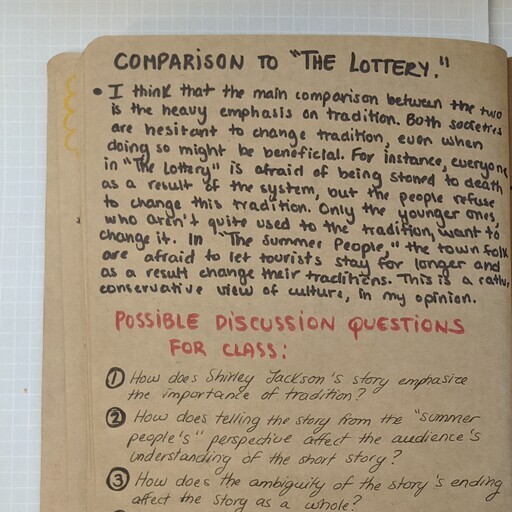 COMPARISON TO "THE LOTTERY."
• I think that the main comparison between the two
is the heavy emphasis on tradition. Both societies
are hesitant to change tradition, even when
doing so might be beneficial. For instance, everyone
in "The Lottery" is afraid of being stoned to death
as a result of the system, but the people refuse
to change this tradition. Only the younger ones,
who aren't quite used to the tradition, want to
change it. In "The Summer People," the town folk
are afraid to let tourists stay for longer and
as a result change their traditions. This is a
conservative view of culture, in my opinion.
POSSIBLE DISCUSSION QUESTIONS
FOR CLASS:
① How does Shirley Jackson's story emphasize
the importance of tradition?
② How does telling the story from the "summer
people's" perspective affect the audience's
understanding of the short story?
③ How does the ambiguity of the story's ending
affect the story as a whole?